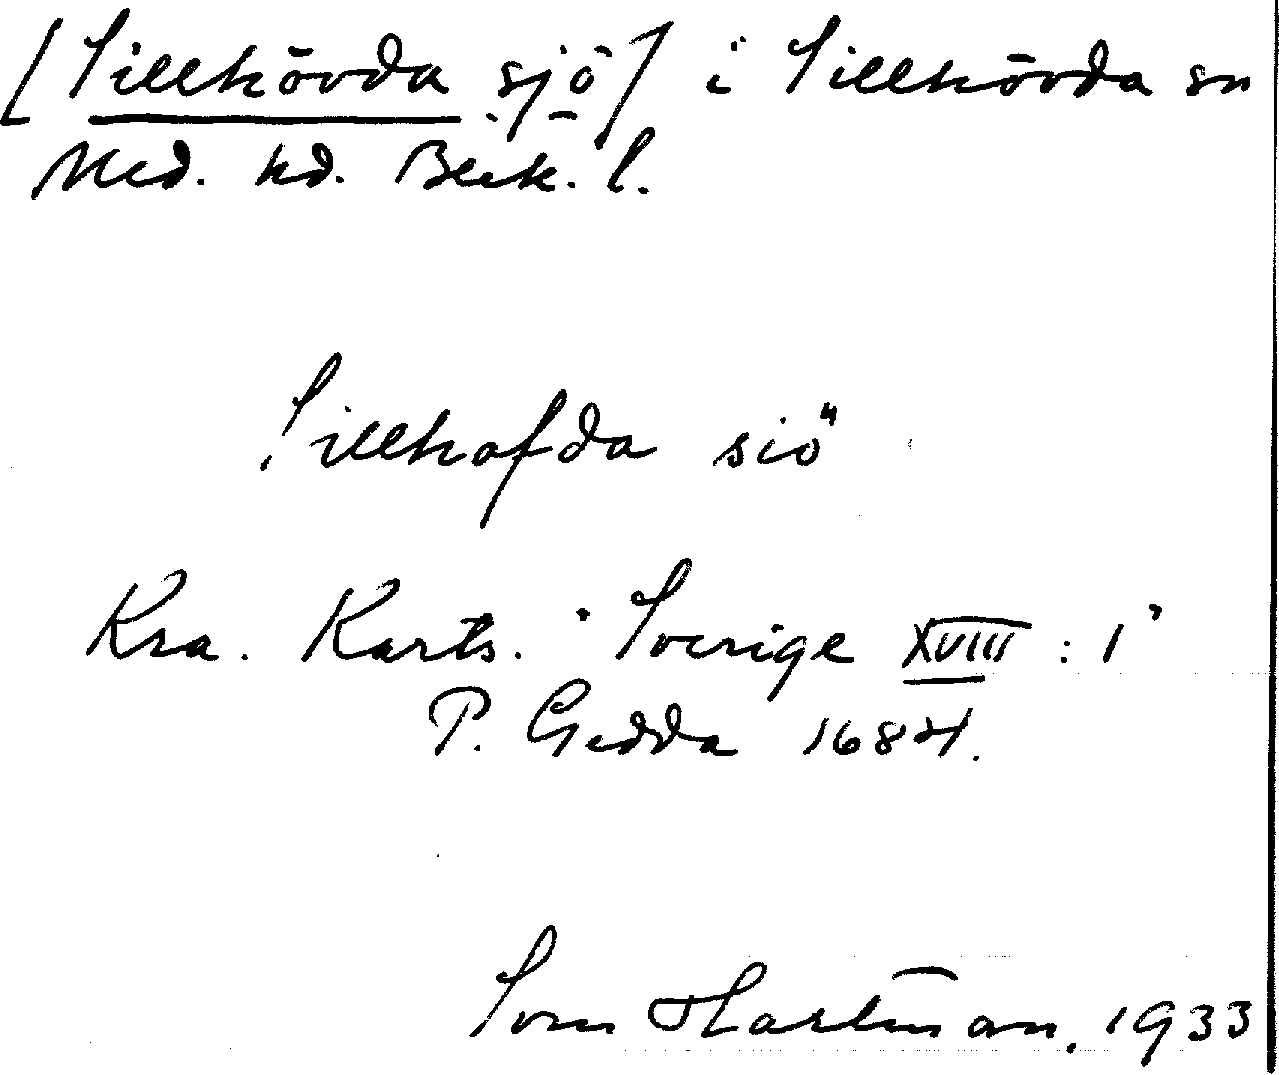 [Sillhövda sjö] i Sillhövda sn
Med. hd. Blek. l.
Sillhofda siö
Kra. Karts. "Sverige XVIII : 1"
P. Gedda 1684.
Sven Hartman. 1933